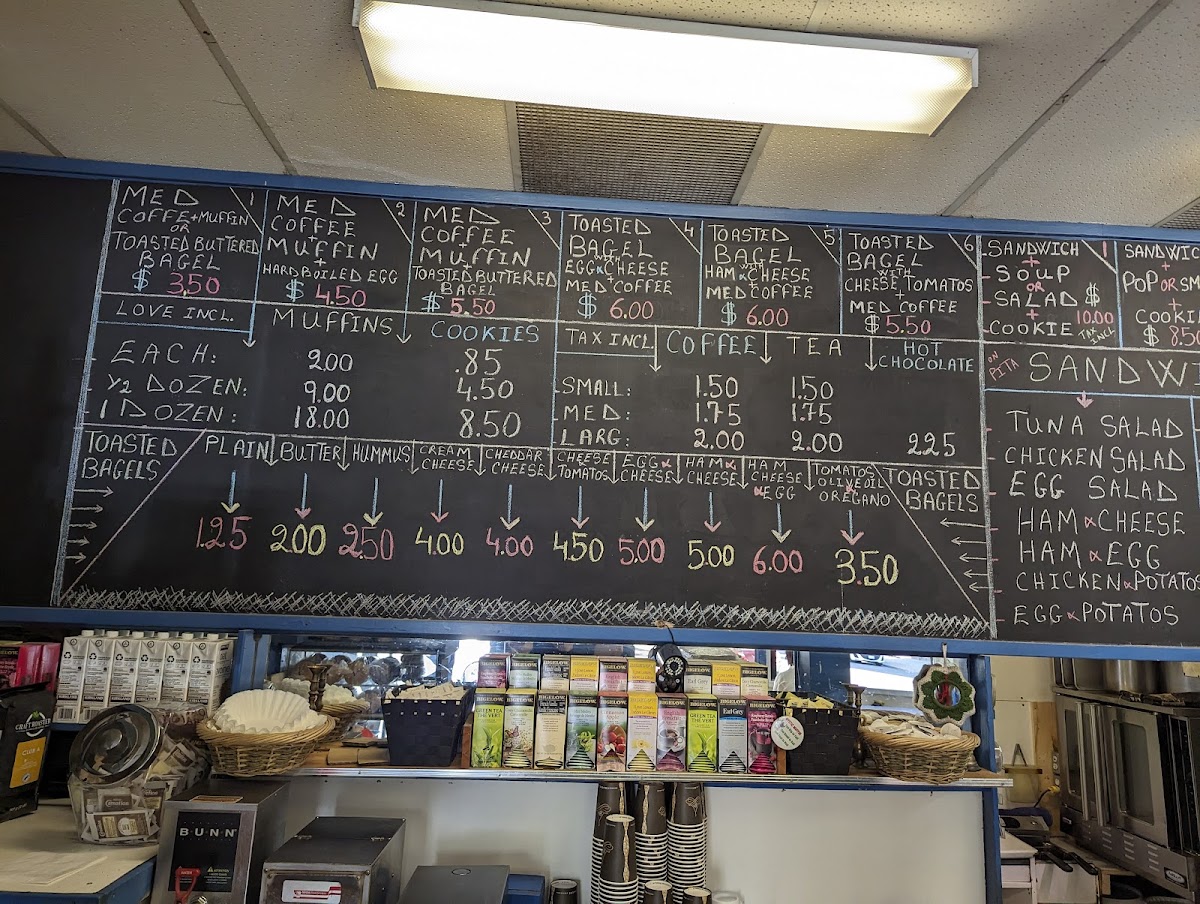 1
MED
COFFE+MUFFIN
OR
TOASTED BUTTERED
BAGEL
$ 3.50
2
MED
COFFEE
+
MUFFIN
+
HARDBOILED EGG
$ 4.50
3
MED
COFFEE
+
MUFFIN
+
TOASTED BUTTERED
BAGEL
$ 5.50
4
TOASTED
BAGEL
WITH
EGG & CHEESE
+
MED COFFEE
$ 6.00
5
TOASTED
BAGEL
WITH
HAM & CHEESE
+
MED COFFEE
$ 6.00
6
TOASTED
BAGEL
WITH
CHEESE, TOMATOS
+
MED COFFEE
$ 5.50
1
SANDWICH
+
SOUP
OR
SALAD $
+ 10.00
COOKIE TAX INCL
SANDWICH
+
POP OR SM
+
COOKI
$ 8.50
LOVE INCL.
MUFFINS COOKIES
EACH: 2.00 .85
1/2 DOZEN: 9.00 4.50
1 DOZEN: 18.00 8.50
TAX INCL.
COFFEE TEA HOT
CHOCOLATE
SMALL: 1.50 1.50
MED: 1.75 1.75
LARG: 2.00 2.00 2.25
TOASTED
BAGELS
PLAIN
1.25
BUTTER
2.00
HUMMUS
2.50
CREAM
CHEESE
4.00
CHEDDAR
CHEESE
4.00
CHEESE
TOMATOS
4.50
EGG &
CHEESE
5.00
HAM &
CHEESE
5.00
HAM
CHEESE
& EGG
6.00
TOMATOS
OLIVE OIL
OREGANO
3.50
TOASTED
BAGELS
ON
PITA
SANDWI
TUNA SALAD
CHICKEN SALAD
EGG SALAD
HAM & CHEESE
HAM & EGG
CHICKEN & POTATOS
EGG & POTATOS
BIGELOW
GREEN TEA
THE VERT
Earl Grey
GREEN TEA
THE VERT
BUNN